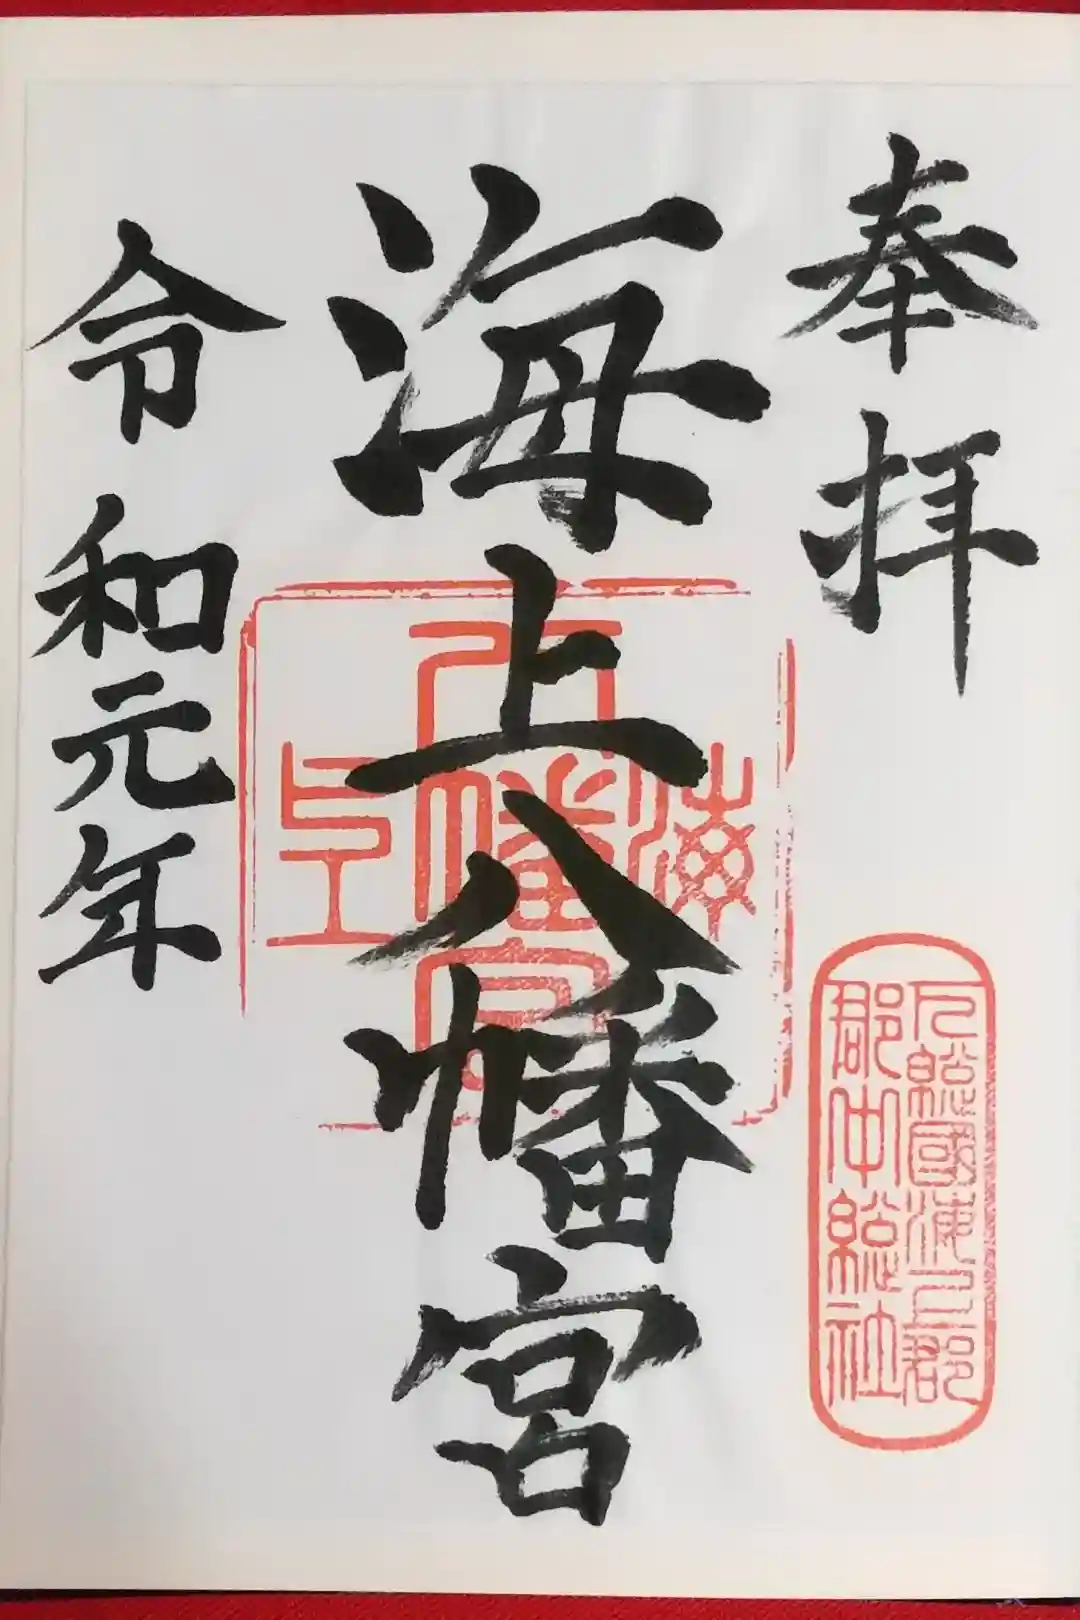 奉拝
下総國海上郡
郡中総社
海上八幡宮
海上
八幡宮
令和元年